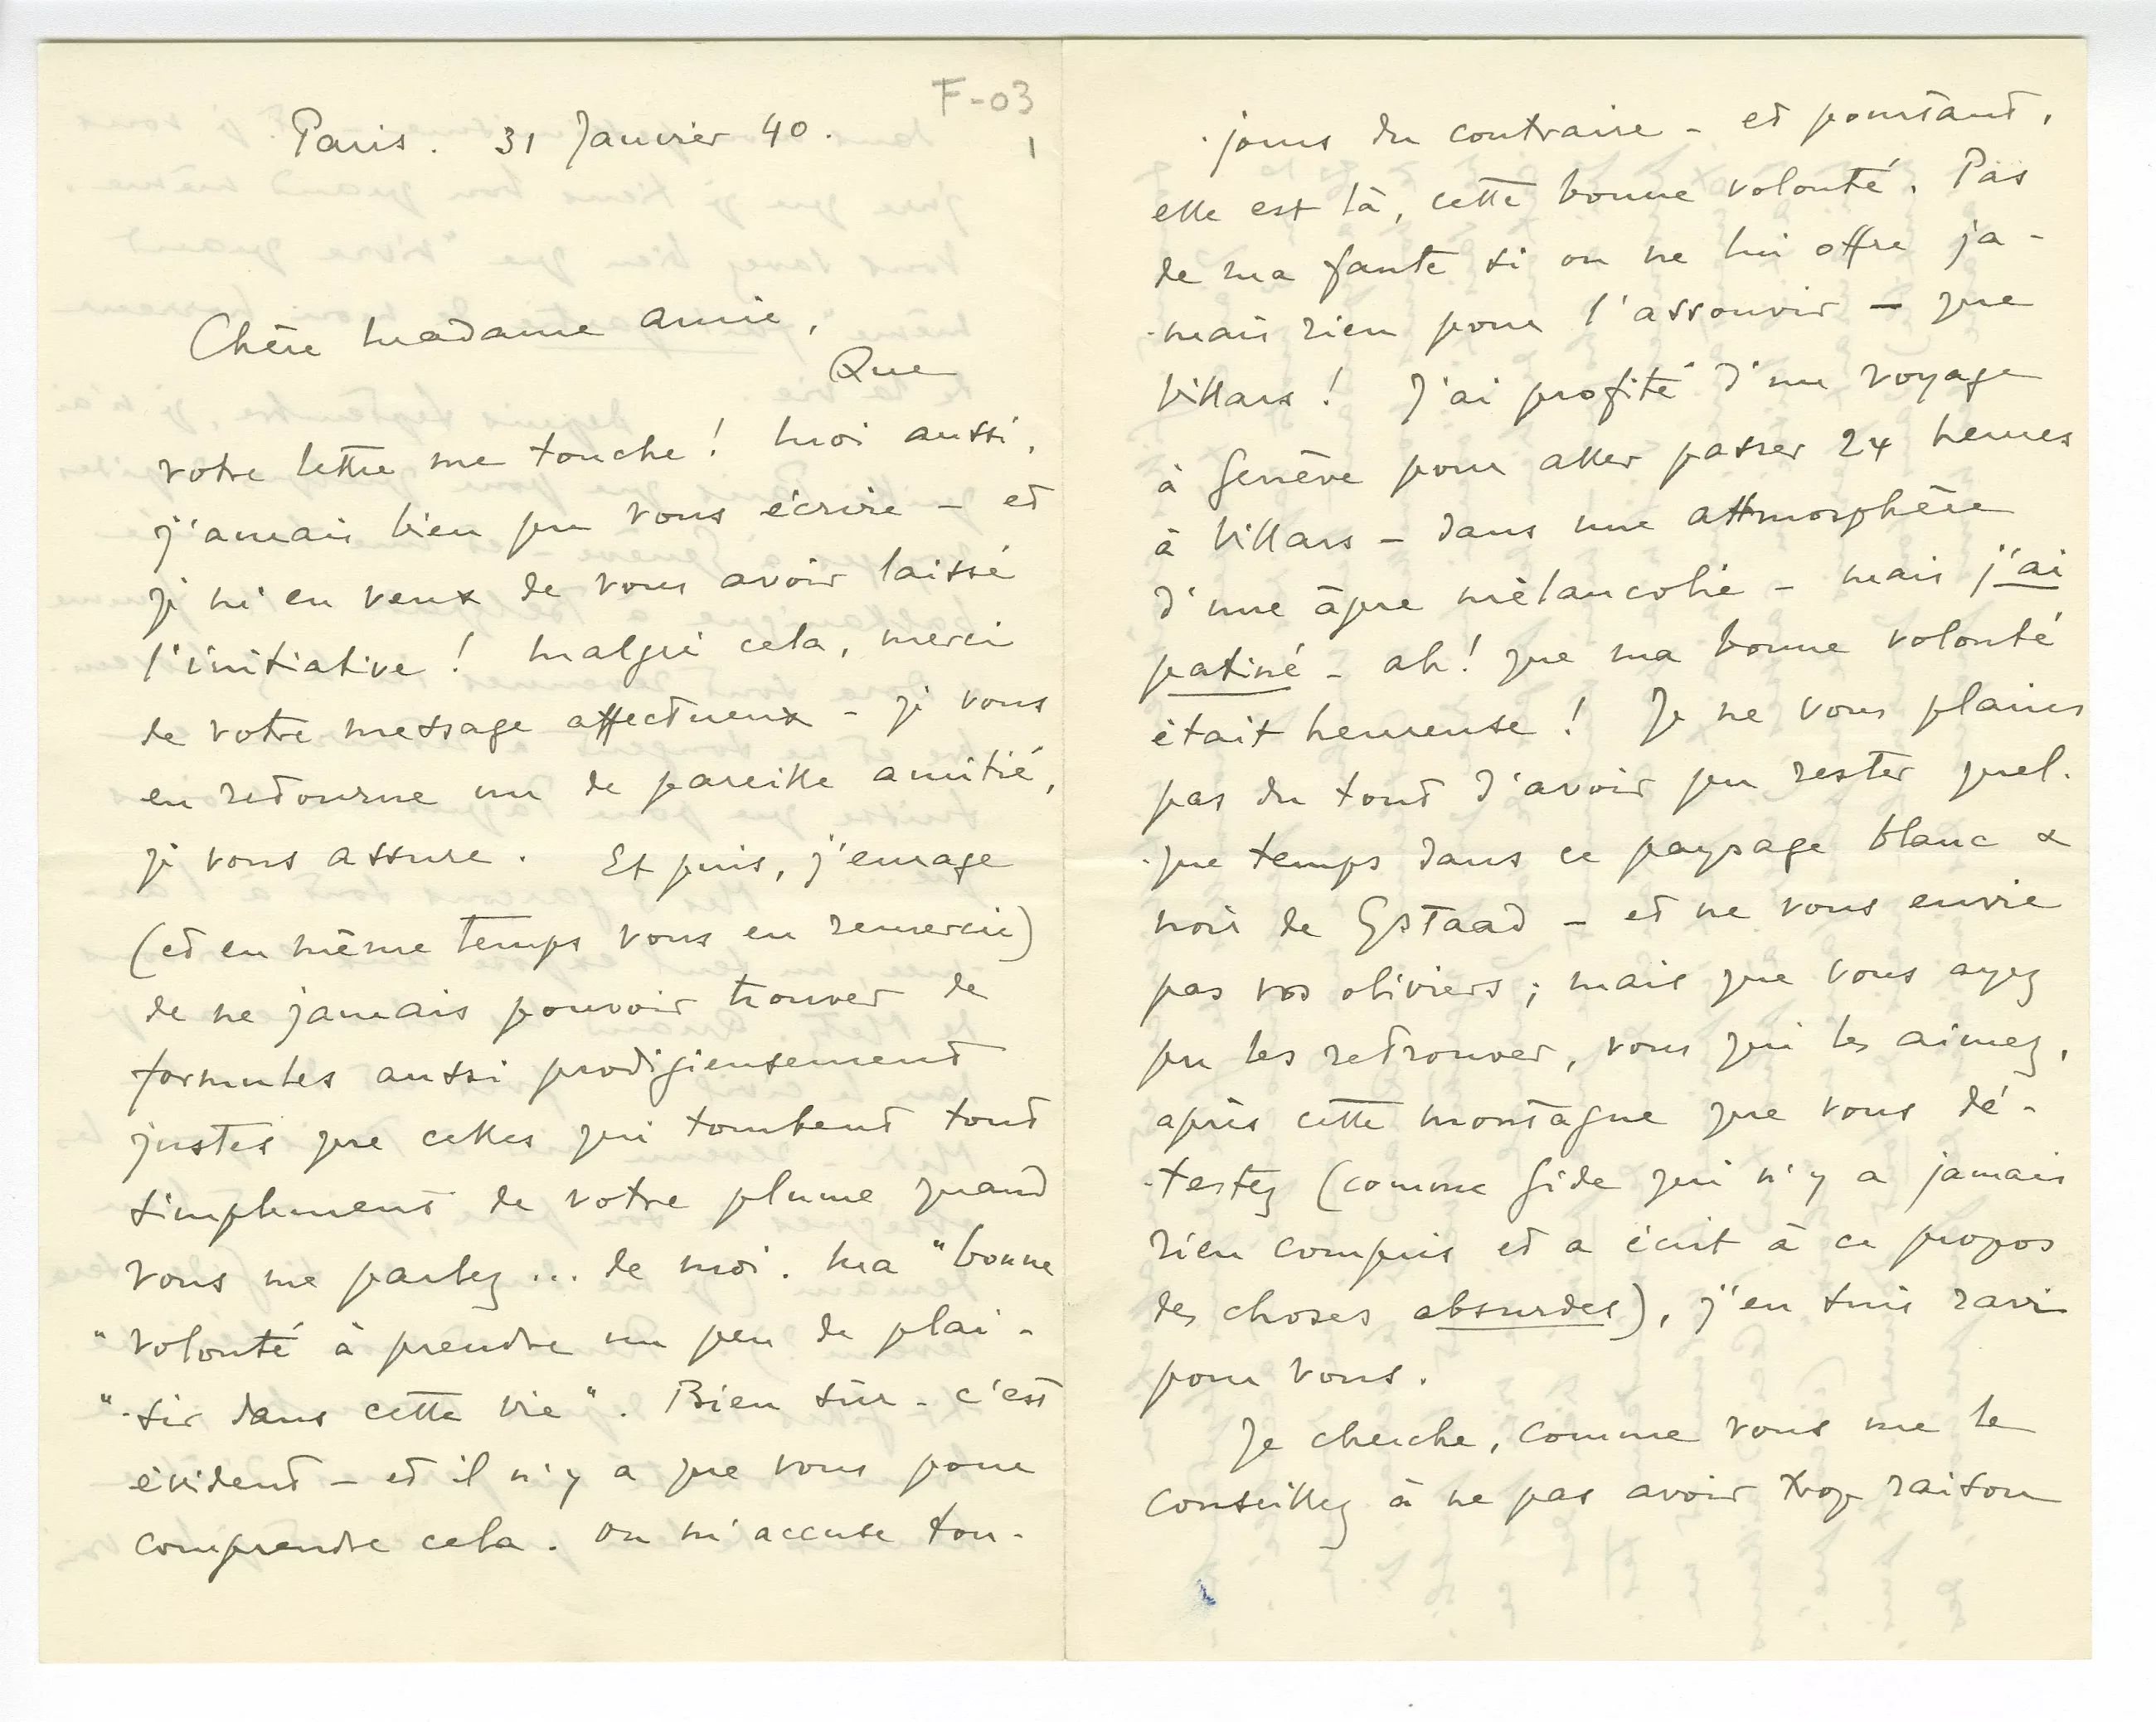 F-03
1
Paris. 31 Janvier 40.
Chère Madame amie,
Que
votre lettre me touche ! Moi aussi,
j'aurais bien pu vous écrire - et
je m'en veux de vous avoir laissé
l'initiative ! Malgré cela, merci
de votre message affectueux - je vous
en retourne un de pareille amitié,
je vous assure. Et puis, j'enrage
(et en même temps vous en remercie)
de ne jamais pouvoir trouver de
formules aussi prodigieusement
justes que celles qui tombent tout
simplement de votre plume quand
vous me parlez ... de moi. Ma "bonne
"volonté à prendre un peu de plai-
"-sir dans cette vie". Bien sûr - c'est
évident - et il n'y a que vous pour
comprendre cela. On m'accuse tou-
-jours du contraire - et pourtant,
elle est là, cette bonne volonté. Pas
de ma faute si on ne lui offre ja-
-mais rien pour l'assouvir - que
Villars ! J'ai profité d'un voyage
à Genève pour aller passer 24 heures
à Villars - dans une attmosphère
d'une âpre mélancolie - mais j'ai
patiné - ah ! que ma bonne volonté
était heureuse ! Je ne vous plains
pas du tout d'avoir pu rester quel-
-que temps dans ce paysage blanc &
noir de Gstaad - et ne vous envie
pas vos oliviers ; mais que vous ayez
pu les retrouver, vous qui les aimez,
après cette montagne que vous dé-
-testez (comme Gide qui n'y a jamais
rien compris et a écrit à ce propos
des choses absurdes), j'en suis ravi
pour vous.
Je cherche, comme vous me le
conseillez à ne pas avoir trop raison